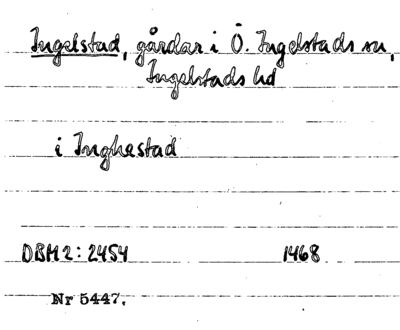 Ingelstad, gårdar i Ö. Ingelstads sn,
Ingelstads hd
i Inghestad
DBM 2: 2454 1468
Nr 5447.